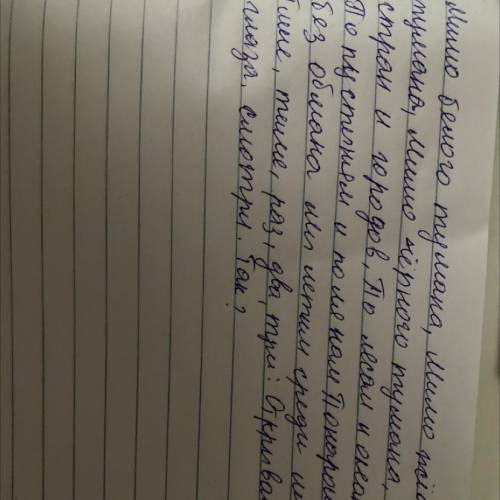 Мимо белого тумана, Мимо
тумана, Мимо чёрного тумана,
стран и городов, По лесам и
По пустыням и полянам
без обмана мы летим среди
Тише, тише, раз, два, три! Открыва
глаза. смотри. Там?